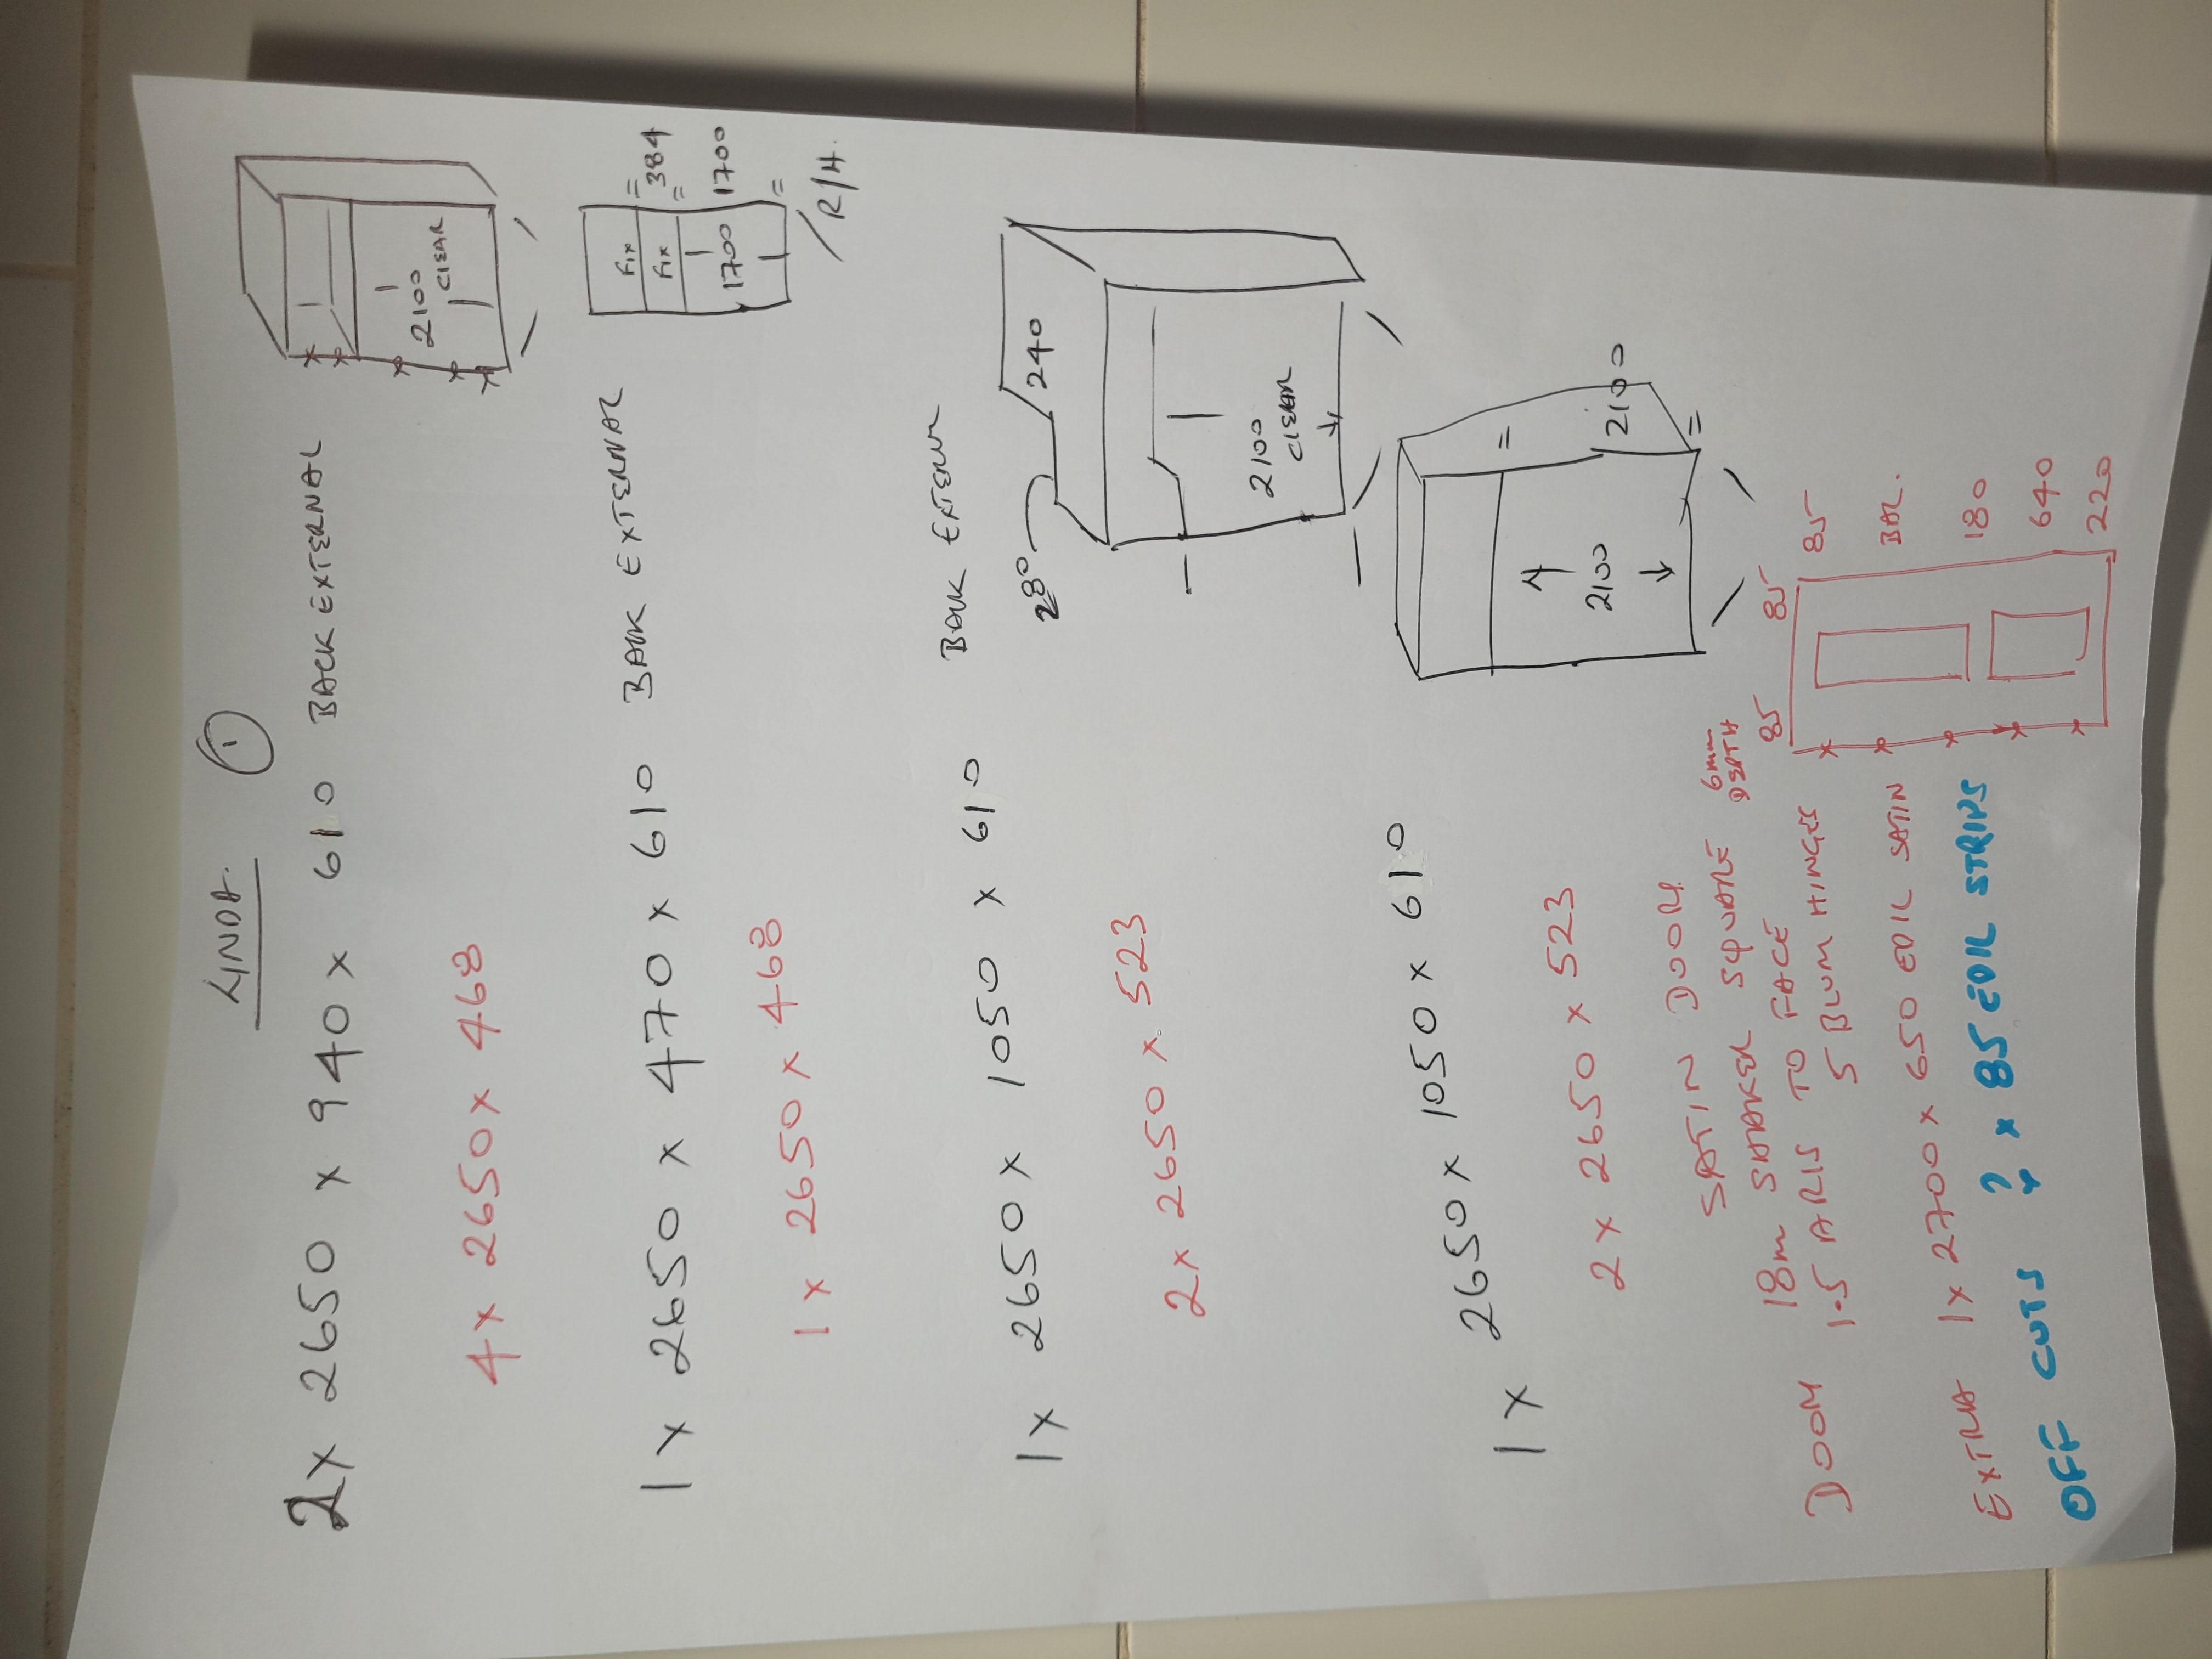 LINDA. 1
2x 2650 x 940 x 610 BACK EXTERNAL
2100
CLEAR
4x 2650 x 468
1x 2650 x 470 x 610 BACK EXTERNAL
Fix
Fix
1700
= 384
=
1700
=
R/H.
1x 2650 x 468
1x 2650 x 1050 x 610 BACK EXTERNAL
280
240
2100
CLEAR
2x 2650 x 523
1x 2650 x 1050 x 610
=
2100
2100
=
2x 2650 x 523
SATIN DOOR
18m SHAKER SQUARE 6mm DEPTH
DOOR 1.5 ARIS TO FACE
5 BLUM HINGES
85 85 85
BAR.
180
640
220
EXTRA 1x 2700 x 650 EDIL SATIN
OFF CUTS ? x 85 EDIL STRIPS